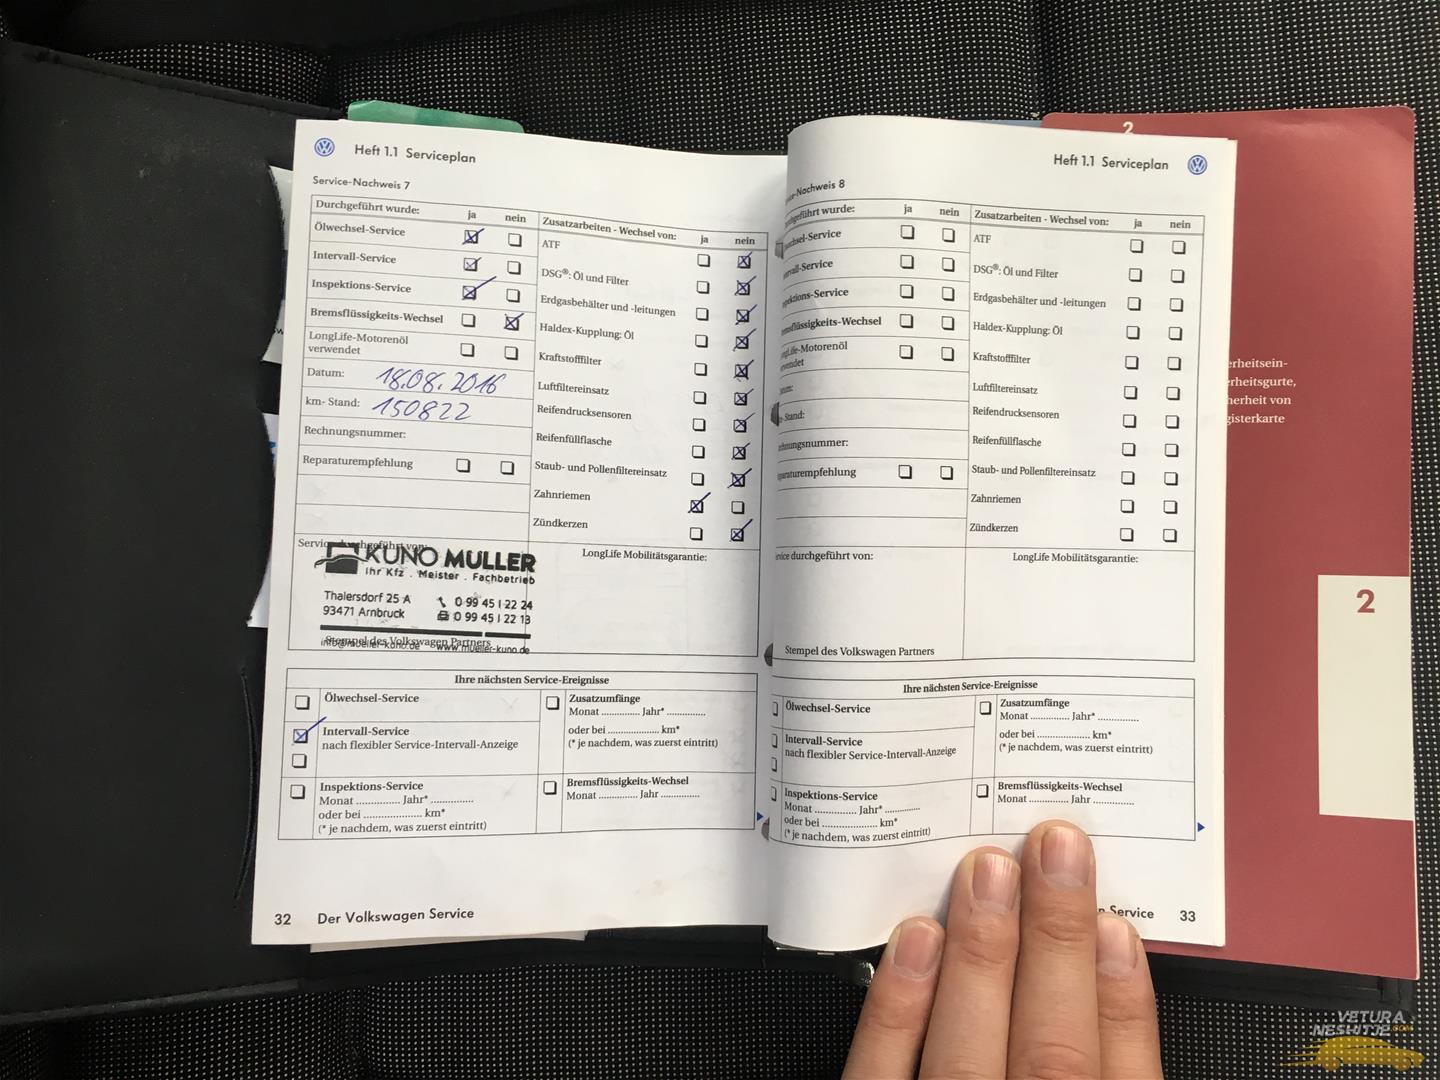 Heft 1.1 Serviceplan
Service-Nachweis 7
Durchgeführt wurde: ja nein
Ölwechsel-Service
Intervall-Service
Inspektions-Service
Bremsflüssigkeits-Wechsel
LongLife-Motorenöl
verwendet
Datum: 18.08.2016
km- Stand: 150822
Rechnungsnummer:
Reparaturempfehlung
Zusatzarbeiten - Wechsel von: ja nein
ATF
DSG®: Öl und Filter
Erdgasbehälter und -leitungen
Haldex-Kupplung: Öl
Kraftstofffilter
Luftfiltereinsatz
Reifendrucksensoren
Reifenfüllflasche
Staub- und Pollenfiltereinsatz
Zahnriemen
Zündkerzen
KUNO MÜLLER
Ihr Kfz . Meister . Fachbetrieb
Thalersdorf 25 A 0 99 45 / 22 24
93471 Arnbruck 0 99 45 / 22 13
Stempel des Volkswagen Partners
info@mueller-kuno.de www.mueller-kuno.de
LongLife Mobilitätsgarantie:
Ihre nächsten Service-Ereignisse
Ölwechsel-Service
Intervall-Service
nach flexibler Service-Intervall-Anzeige
Inspektions-Service
Monat ............... Jahr* ...............
oder bei ................... km*
(* je nachdem, was zuerst eintritt)
Zusatzumfänge
Monat ............. Jahr* .............
oder bei .................... km*
(* je nachdem, was zuerst eintritt)
Bremsflüssigkeits-Wechsel
Monat ............. Jahr .............
32 Der Volkswagen Service
Heft 1.1 Serviceplan
-Nachweis 8
wurde: ja nein
-Service
-Service
-Service
-Wechsel
-Motorenöl
Stand:
nummer:
empfehlung
Zusatzarbeiten - Wechsel von: ja nein
ATF
DSG®: Öl und Filter
Erdgasbehälter und -leitungen
Haldex-Kupplung: Öl
Kraftstofffilter
Luftfiltereinsatz
Reifendrucksensoren
Reifenfüllflasche
Staub- und Pollenfiltereinsatz
Zahnriemen
Zündkerzen
durchgeführt von:
Stempel des Volkswagen Partners
LongLife Mobilitätsgarantie:
Ihre nächsten Service-Ereignisse
Ölwechsel-Service
Intervall-Service
nach flexibler Service-Intervall-Anzeige
Inspektions-Service
Monat ............... Jahr* ...............
oder bei ................... km*
(* je nachdem, was zuerst eintritt)
Zusatzumfänge
Monat ............. Jahr* .............
oder bei .................... km*
(* je nachdem, was zuerst eintritt)
Bremsflüssigkeits-Wechsel
Monat ............. Jahr .............
n Service 33
2
erheitsein-
erheitsgurte,
herheit von
gisterkarte
2
VETURA
NESHITJE.COM